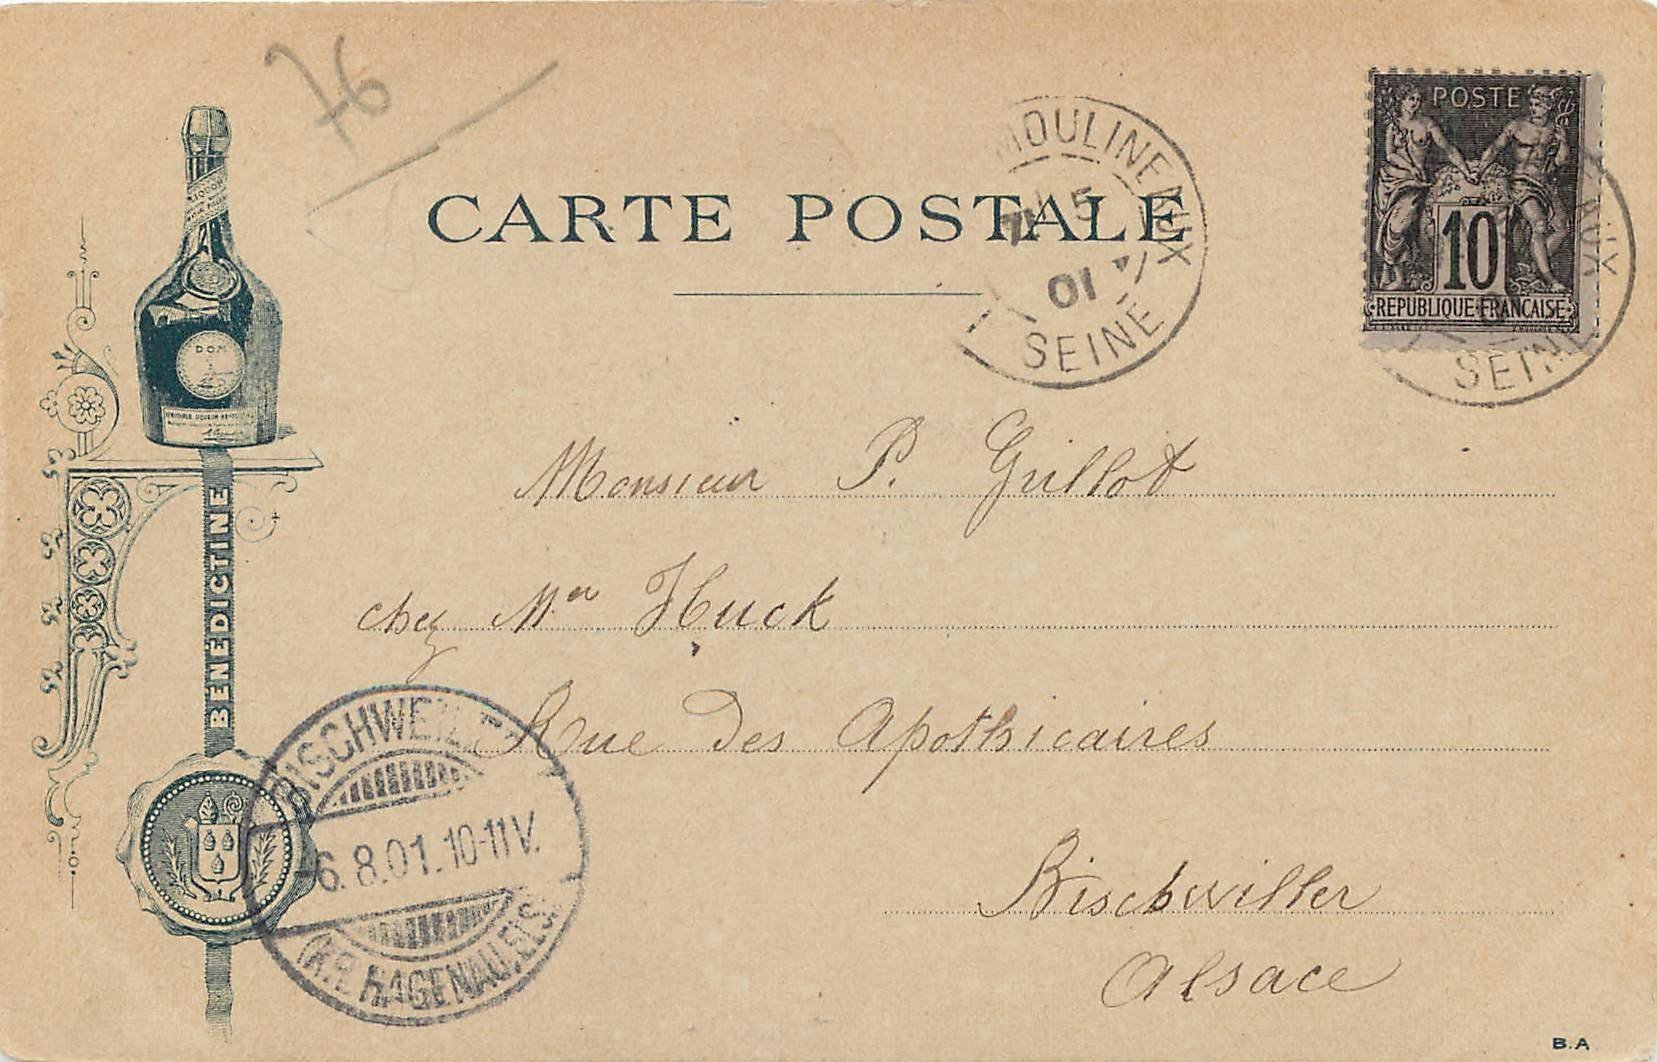 76
CARTE POSTALE
POSTE
10
REPUBLIQUE FRANCAISE
MOULINEAUX
5
01
SEINE
AUX
SEINE
DOM
BÉNÉDICTINE
Monsieur P. Grillot
chez Mer Huck
Rue des Apothicaires
Bischwiller
Alsace
BISCHWEILER
6.8.01.10-11V.
(KR. HAGENAU, ELS)
B.A